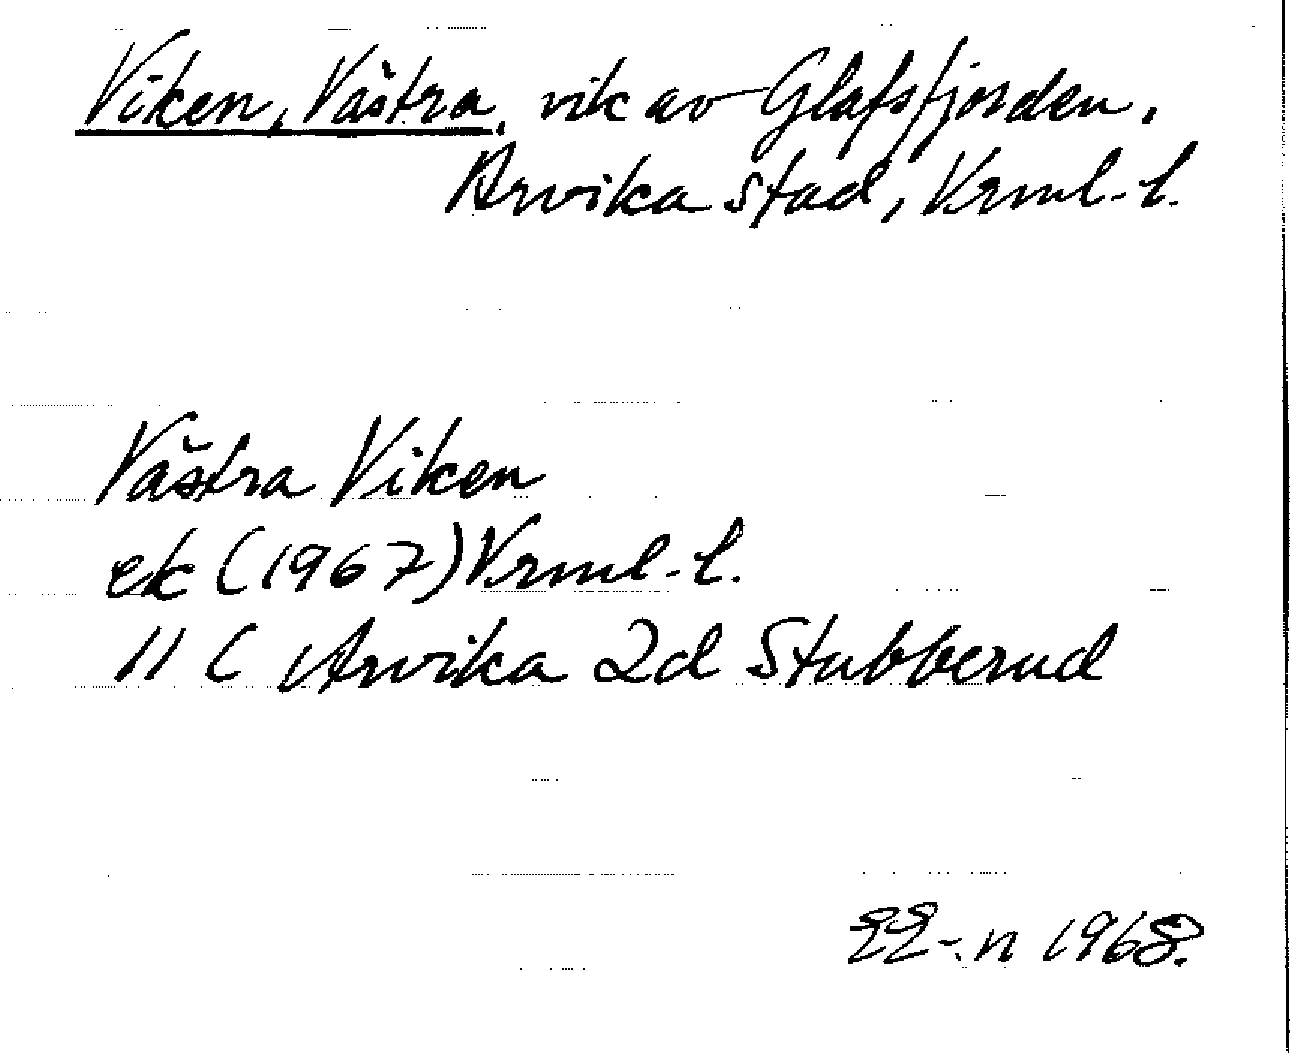 Viken, Västra, vik av Glafsfjorden,
Arvika stad, Vrml.l.
Västra Viken
ek (1967) Vrml.l.
11 C Arvika 2d Stubberud
1968.